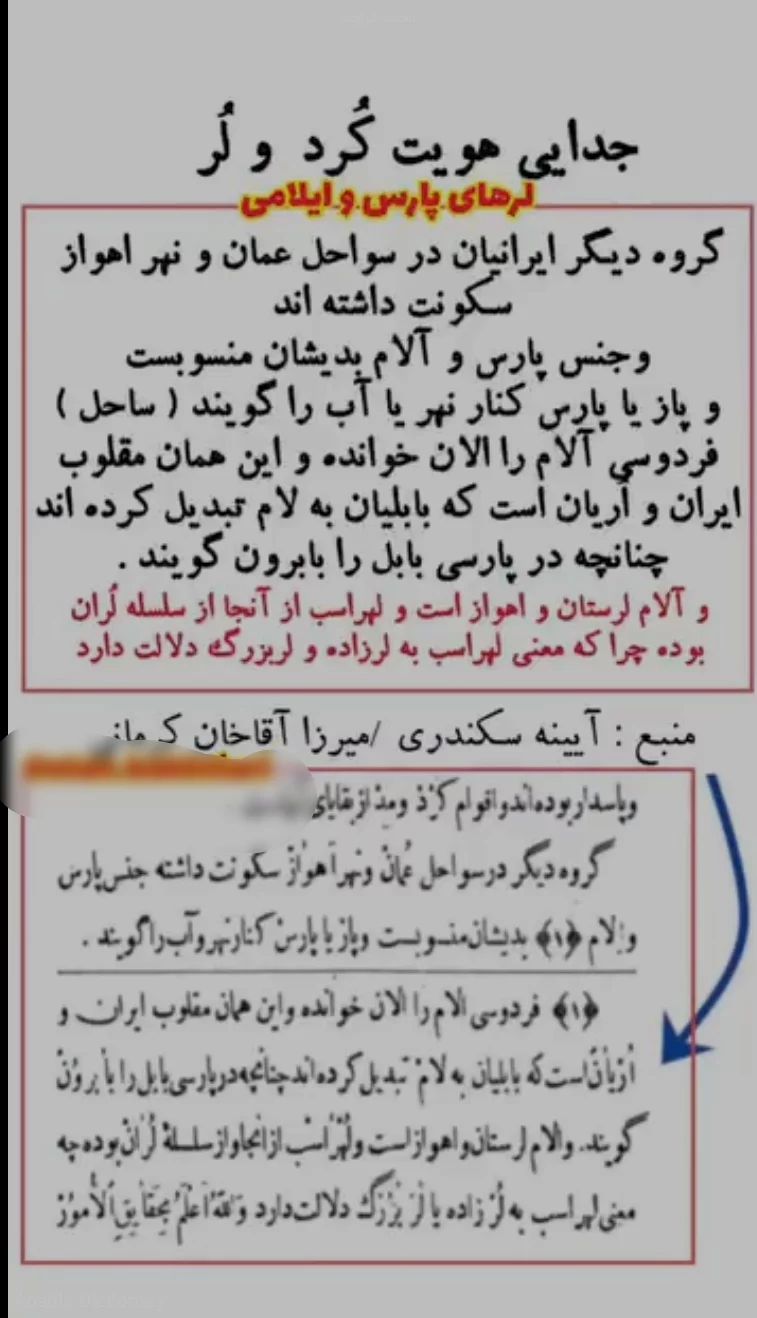 جدایی هویت کُرد و لُر
لرهای پارس و ایلامی
گروه دیگر ایرانیان در سواحل عمان و نهر اهواز
سکونت داشته اند
وجنس پارس و آلام بدیشان منسوبست
و پاز یا پارس کنار نهر یا آب را گویند ( ساحل )
فردوسی آلام را الان خوانده و این همان مقلوب
ایران و اُریان است که بابلیان به لام تبدیل کرده اند
چنانچه در پارسی بابل را بابرون گویند .
و آلام لرستان و اهواز است و لهراسب از آنجا از سلسله لُران
بوده چرا که معنی لهراسب به لرزاده و لربزرگ دلالت دارد
منبع : آیینه سکندری /میرزا آقاخان کرمانی
وپاسدار بوده‌اند واقوام کرد ومد از بقایای
گروه دیگر در سواحل عُمان ونهر اهواز سکونت داشته جنس پارس
والام ﴿۱﴾ بدیشان منسوبست وپاز یا پارس کنار نهر وآب را گویند .
﴿۱﴾ فردوسی الام را الان خوانده واین همان مقلوب ایران و
اُرْیانْ است که بابلیان به لام تبدیل کرده‌اند چنانچه در پارسی بابل را بابرون
گویند. والام لرستان و اهواز است ولُهْراسْب از انجا واز سلسلهٔ لُران بوده چه
معنی لهراسب به لُر زاده یا لُر بُزُرْگ دلالت دارد وَاللّٰهُ اَعْلَمُ بِحَقایِقِ الْاُمُورْ